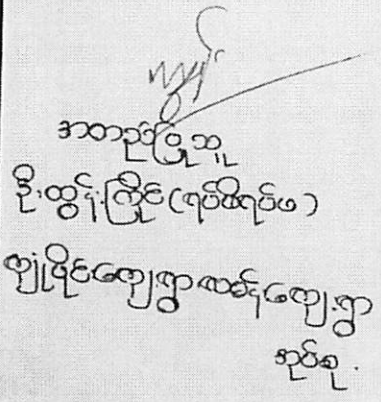 အတည်ပြုသူ
ဦးထွန်းကြိုင် (ရပ်မိရပ်ဖ)
ကျုံပိုင်ကျေးရွာ လမ်းကျေးရွာ
အုပ်စု .